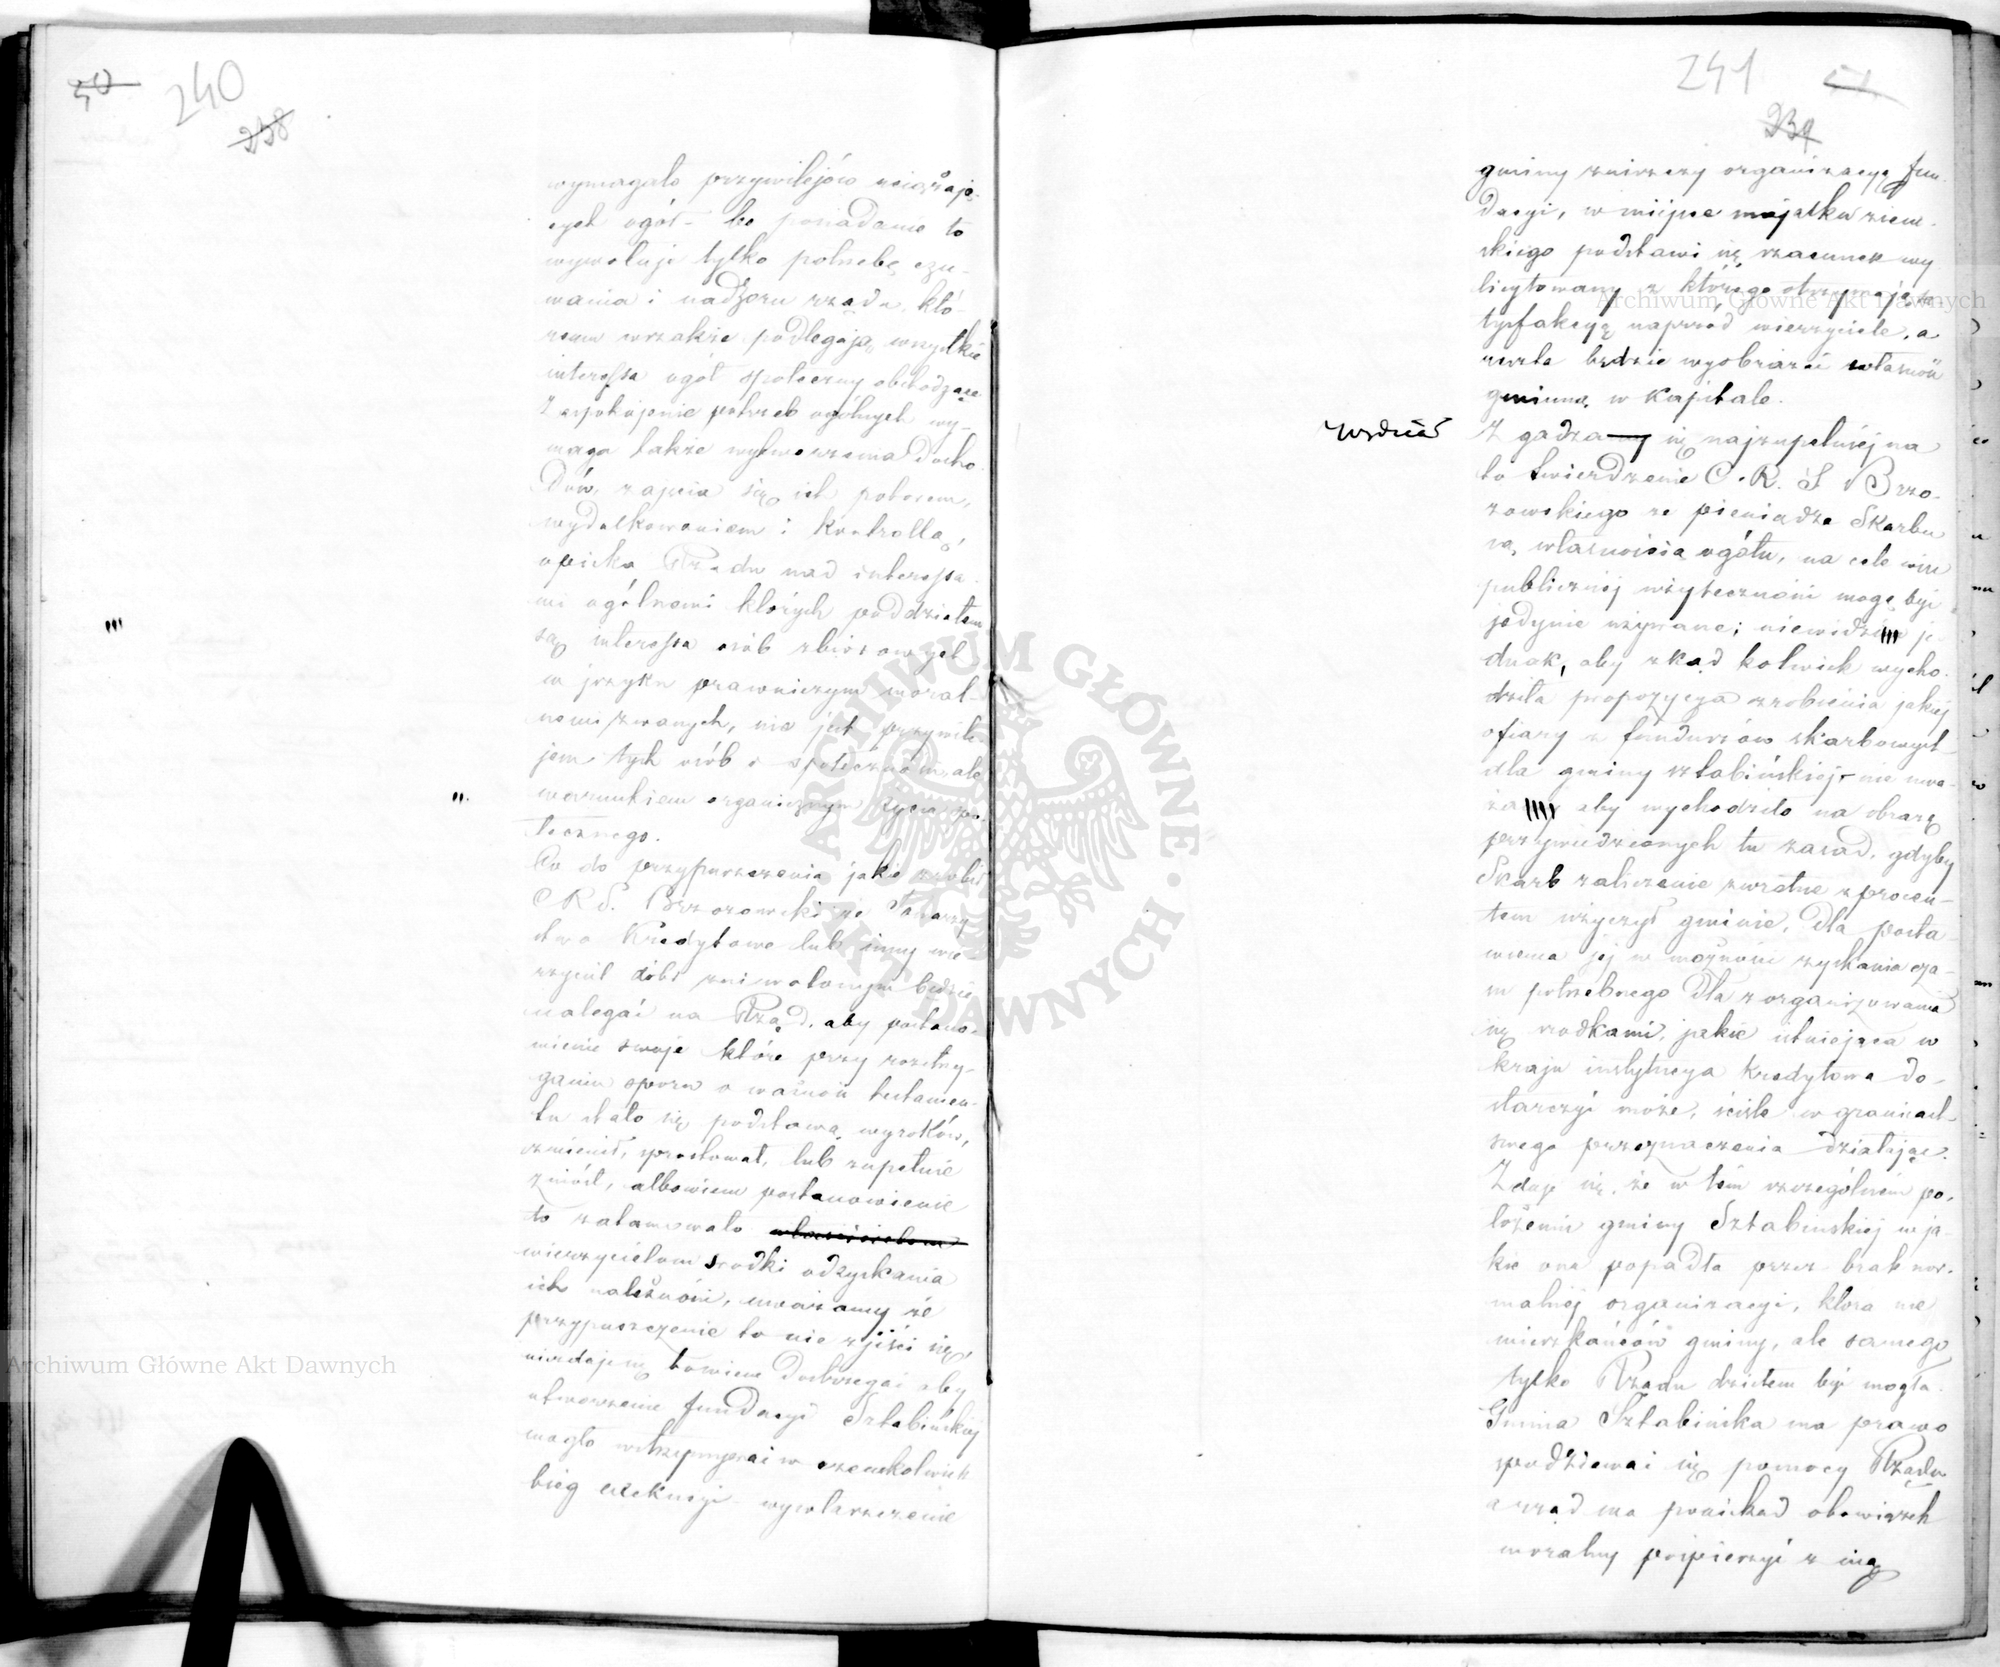 50
240
238
wymagało przywilejów uciążają-
cych ogół - bo posiadanie to
wywołuje tylko potrzebę czu-
wania i nadzoru rządu, któ-
remu wszakże podlegają wszystkie
interessa ogół społeczny obchodzące
Zaspokojenie potrzeb ogólnych wy-
maga także wytworzenia docho-
dów, zajęcia się ich poborem,
wydatkowaniem i kontrollą,
opieka Rządu nad interessa-
mi ogólnemi których poddziałem
są interessa osób zbiorowych
w języku prawniczym moral-
nemi zwanych, nie jest przywile-
jem tych osób w społeczności, ale
warunkiem organicznym życia spo-
łecznego.
Co do przypuszczenia jakie zrobił
C.R.S. Brzozowski że Towarzy-
stwo Kredytowe lub inny wie-
rzyciel dóbr zniewolonym będzie
nalegać na Rząd, aby postano-
wienie swoje które przy rozstrzy-
ganiu sporu o ważność testamen-
tu stało się podstawą wyroków,
zmienił, sprostował, lub zupełnie
zniósł, albowiem postanowienie
to zatamowało właścicielom
wierzycielom srodki odzyskania
ich należności, uważamy że
przypuszczenie to nie ziści się,
niezdaje się bowiem dostrzegać aby
utworzenie fundacyi Sztabińskiej
mogło wstrzymywać w czemkolwiek
bieg exekucyi - wywłaszczenie
Archiwum Główne Akt Dawnych
241
239
gminy zniszczy organizacyą fun-
dacyi, w miejsce majątku ziem-
skiego podstawi się szacunek wy
licytowany z którego otrzymają sa-
tysfakcyą naprzód wierzyciele, a
reszta będzie wyobrażać własność
gminną w kapitale.
Zgadzamy się najzupełniej na
to twierdzenie C.R.S Brzo-
zowskiego że pieniądze Skarbu
są własnością ogółu, na cele więc
publicznej użyteczności mogą być
jedynie używane; niewidzim je-
dnak, aby zkąd kolwiek wycho-
dziła propozycya zrobienia jakiej
ofiary z funduszów skarbowych
dla gminy sztabińskiej - nie uwa-
żamy aby wychodziło na obrazę
przywiedzionych tu zasad, gdyby
Skarb zaliczenie zwrotne z procen-
tem użyczył gminie, dla posta-
wienia jej w możności zyskania cza-
su potrzebnego dla zorganizowania
się srodkami, jakie istniejąca w
kraju instytucya kredytowa do-
starczyć może, ściśle w granicach
swego przeznaczenia działając.
Zdaje się, że w tém szczególném po-
łożeniu gminy Sztabinskiej w ja-
kie ona popadła przez brak nor-
malnéj organizacyi, która nie
mieszkańców gminy, ale samego
tylko Rządu dziełem być mogła.
Gmina Sztabińska ma prawo
spodziewać się pomocy Rządu
a rząd ma poniekąd obowiązek
moralny pospieszyć z nią
Archiwum Główne Akt Dawnych
ARCHIWUM GŁÓWNE AKT DAWNYCH